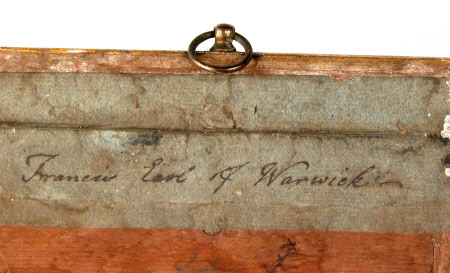 Francis Earl of Warwick